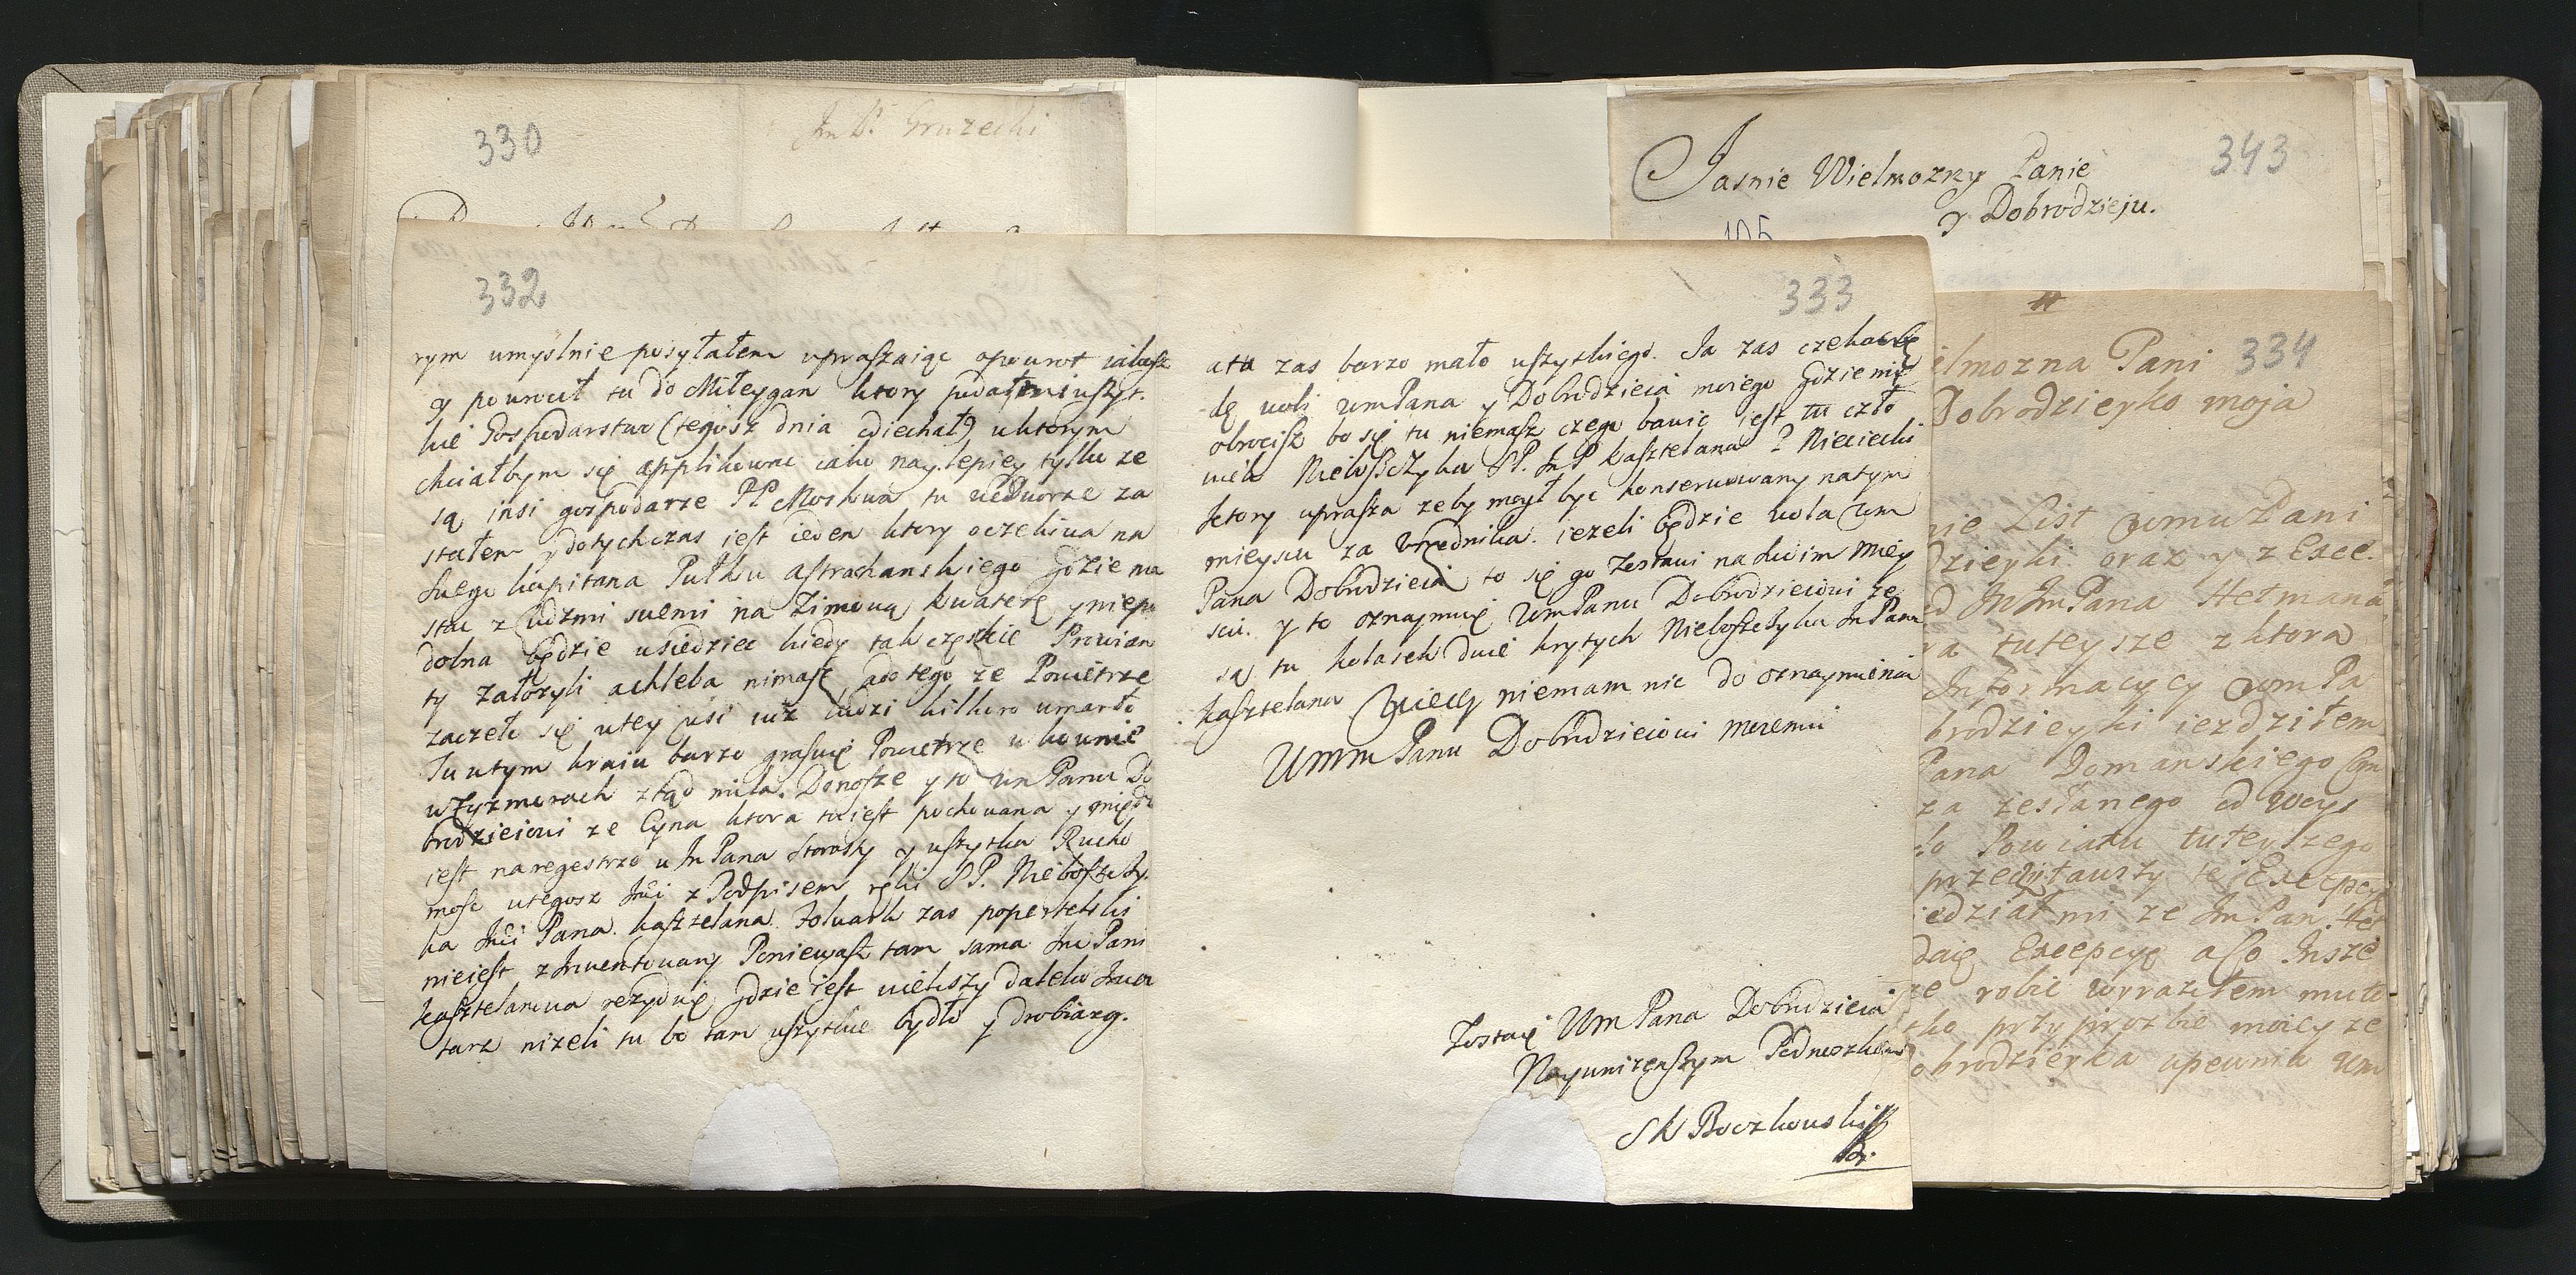 330
Im P. Gruzecki
332
rym umyslnie posyłałem upraszaiąc opowrot iakosz
y powrocił tu do Miłeygan ktory podał mi uszyt.
kie Gospodarstwo (tegosz dnia odiechał) uktorym
chciałbym się applikowac iako naylepiey tylko ze
są insi gospodarze PP Moskwa tu weDworze za
stałem y dotychczas iest ieden ktory oczekiwa na
swego kapitana Pułku astrachanskiego Gdzie ma
stac z Ludzmi swemi na Zimową kwaterę y niepo
dobna będzie usiedziec kiedy tak częskie Prowian
ty załozyli achleba nimasz, adotego ze Powietrze
zaczeło się utey wsi iuz ludzi kilkoro umarło
Tu utym kraiu barzo grasuię Powietrze u kownie
w Zyzmorach ztąd mila. Donosze y to um Panu Do
brodzieiowi ze Cyna ktora tu iest pochowana y miedz
iest naregestrze u Im Pana Starosty y uszytka Rucho
mosc utegosz Imci z Podpisem ręki SP. Nieboszczy.
ka Imci Pana kasztelana. Folwark zas popertelski
nieiest zInwentowany Poniewasz tam sama Im Pani
kasztelanowa rezyduię gdzie iest wiekszy daleko Inwen
tarz nizeli tu bo tam uszytkie bydło y drobiazg.
333
a tu zas barzo mało uszytkiego. Ja zas czekac bę
dę woli um Pana y Dobrodzieia moiego Gdzie mię
obrocisz bo się tu niemasz czego bawic iest tu czło
wiek Nieboszczyka SP. Im P kasztelana P Nieciecki
ktory uprasza zeby mogł byc konserwowany natym
mieyscu za Vrzednika. iezeli będzie wola um
Pana Dobrodzieia to się go Zestawi na kim miey
scu. y to oznaymuię Um Panu Dobrodzieiowi ze
są tu kolasek dwie krytych Nieboszczyka Im Pana
kasztelana Więcey niemam nic do oznaymienia
Umm Panu Dobrodzieiowi Moiemu
Zostaię Um Pana Dobrodzieia
Nayunizenszym Podnoszkiem
SK Boczkowski
343
Jasnie Wielmozny Panie
y Dobrodzieju.
105
334
elmozna Pani
Dobrodzieyko moja
nie List wmu Pani
dzieyki oraz y z Exce.
d Im Pana Hetmana
ra tuteysze z ktora
Informacycy wm Pa
brodzieyki iezdziłem
Pana Domanskiego
za zesłanego od Woys
do Powiatu tuteyszego
przeczytawszy te Excepcyi
iedział mi ze Im Pan Het
daię Excepcyę abo Insze
ze robie wyraziłem mute-
tko przy prozbie moicy ze
obrodzieyka upewnia um